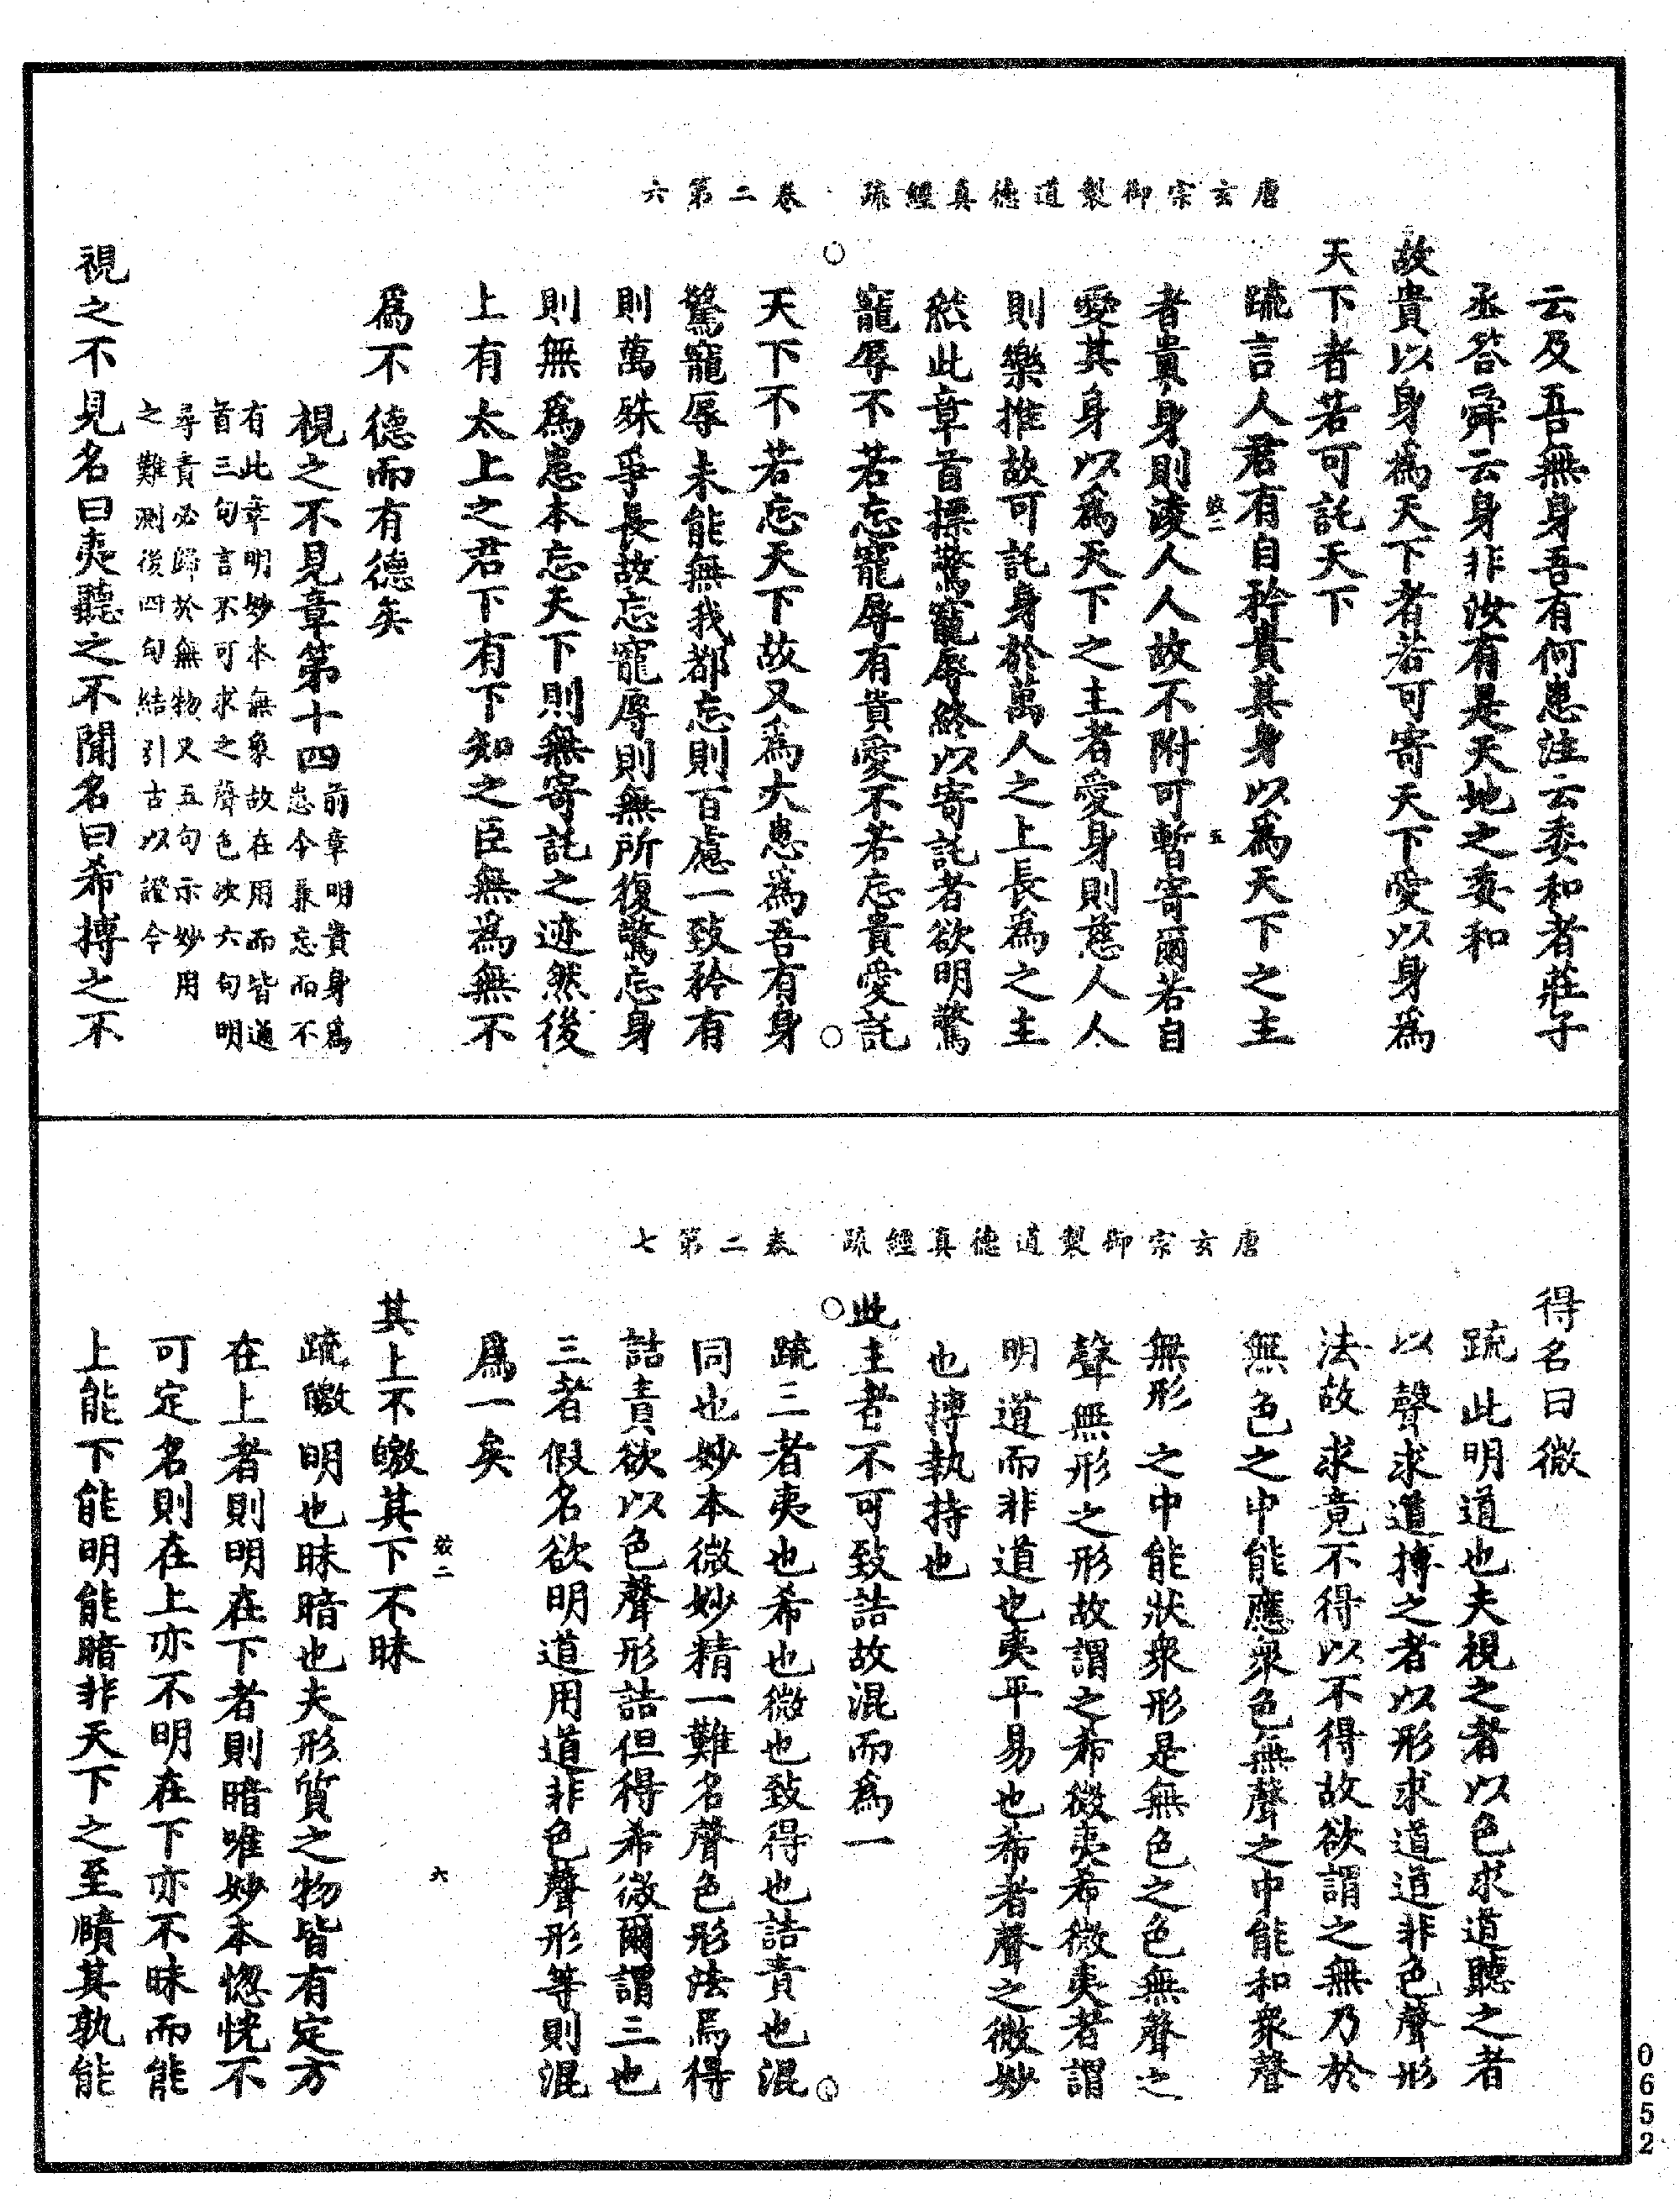 唐玄宗御製道德真經疏　卷二第六
云及吾無身吾有何患註云委和者莊子
丞答舜云身非汝有是天地之委和
故貴以身為天下者若可寄天下愛以身為
天下者若可託天下
疏言人君有自矜貴其身以為天下之主
效二　五
者貴身則淩人人故不附可暫寄爾若自
愛其身以為天下之主者愛身則慈人人
則樂推故可託身於萬人之上長為之主
然此章首摽驚寵辱終以寄託者欲明驚
寵辱不若忘寵辱有貴愛不若忘貴愛託
天下不若忘天下故又為大患為吾有身
驚寵辱未能無我都忘則百慮一致矜有
則萬殊爭長故忘寵辱則無所復驚忘身
則無為患本忘天下則無寄託之迹然後
上有太上之君下有下知之臣無為無不
為不德而有德矣
視之不見章第十四
前章明貴身為
患令兼忘而不
有此章明妙本無象故在用而皆通
首三句言不可求之聲色次六句明
尋責必歸於無物又五句示妙用
之難測後四句結引古以證今
視之不見名曰夷聽之不聞名曰希摶之不
唐玄宗御製道德真經疏　卷二第七
得名曰微
疏此明道也夫視之者以色求道聽之者
以聲求道摶之者以形求道道非色聲形
法故求竟不得以不得故欲謂之無乃於
無色之中能應衆色無聲之中能和衆聲
無形之中能狀衆形是無色之色無聲之
聲無形之形故謂之希微夷希微夷者謂
明道而非道也夷平易也希者聲之微妙
也摶執持也
此三者不可致詰故混而為一
疏三者夷也希也微也致得也詰責也混
同也妙本微妙精一難名聲色形法焉得
詰責欲以色聲形詰但得希微爾謂三也
三者假名欲明道用道非色聲形等則混
為一矣
效二　六
其上不皦其下不昧
疏皦明也昧暗也夫形質之物皆有定方
在上者則明在下者則暗唯妙本惚恍不
可定名則在上亦不明在下亦不昧而能
上能下能明能暗非天下之至賾其孰能
0652